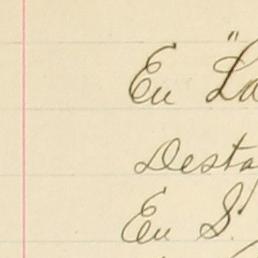 En "La
Desta
En S.